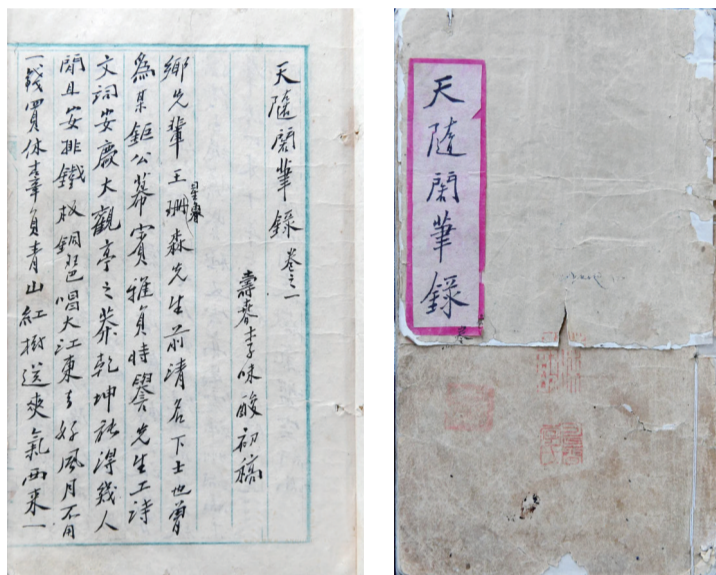 天隨閣筆錄 卷之一
壽春李味酸初稿
鄉先輩王珊森先生前清名下士也曾
星垣
為某鉅公幕賓雅負時譽先生工詩
文詞安慶大觀亭之莽乾坤能得幾人
閒且安排鐵板銅琶唱大江東去好風月不用
一錢買休辜負青山紅樹送爽氣西來一
天隨閣筆錄